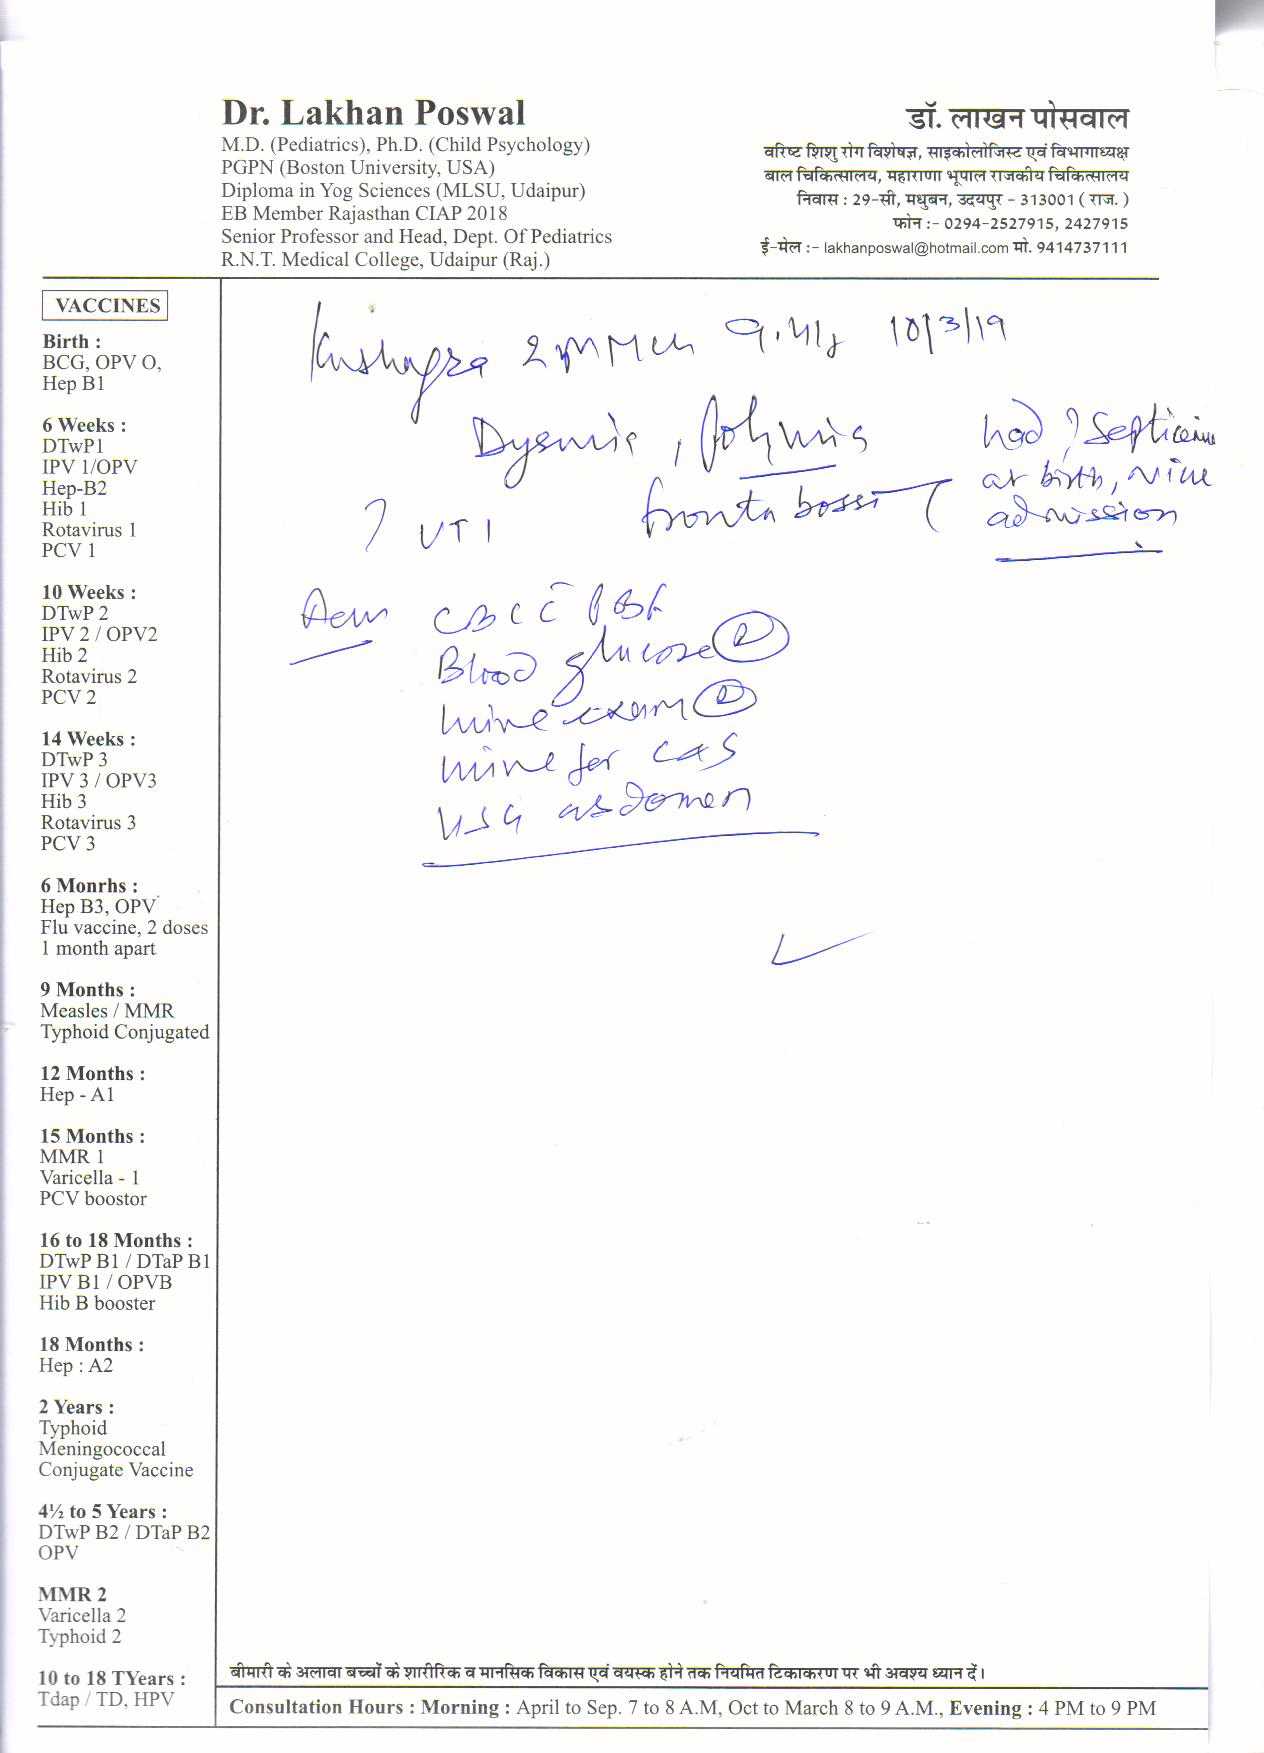 Dr. Lakhan Poswal
M.D. (Pediatrics), Ph.D. (Child Psychology)
PGPN (Boston University, USA)
Diploma in Yog Sciences (MLSU, Udaipur)
EB Member Rajasthan CIAP 2018
Senior Professor and Head, Dept. Of Pediatrics
R.N.T. Medical College, Udaipur (Raj.)
डॉ. लाखन पोसवाल
वरिष्ट शिशु रोग विशेषज्ञ, साइकोलोजिस्ट एवं विभागाध्यक्ष
बाल चिकित्सालय, महाराणा भूपाल राजकीय चिकित्सालय
निवास : 29-सी, मधुबन, उदयपुर - 313001 ( राज. )
फोन :- 0294-2527915, 2427915
ई-मेल :- lakhanposwal@hotmail.com मो. 9414737111
VACCINES
Birth :
BCG, OPV O,
Hep B1
6 Weeks :
DTwP1
IPV 1/OPV
Hep-B2
Hib 1
Rotavirus 1
PCV 1
10 Weeks :
DTwP 2
IPV 2 / OPV2
Hib 2
Rotavirus 2
PCV 2
14 Weeks :
DTwP 3
IPV 3 / OPV3
Hib 3
Rotavirus 3
PCV 3
6 Monrhs :
Hep B3, OPV
Flu vaccine, 2 doses
1 month apart
9 Months :
Measles / MMR
Typhoid Conjugated
12 Months :
Hep - A1
15 Months :
MMR 1
Varicella - 1
PCV boostor
16 to 18 Months :
DTwP B1 / DTaP B1
IPV B1 / OPVB
Hib B booster
18 Months :
Hep : A2
2 Years :
Typhoid
Meningococcal
Conjugate Vaccine
4½ to 5 Years :
DTwP B2 / DTaP B2
OPV
MMR 2
Varicella 2
Typhoid 2
10 to 18 TYears :
Tdap / TD, HPV
Kushagra 10/3/19
had ? Septicemia
at birth,
admission
? UTI
CBC PBF
Blood glucose
urine exam
urine for C&S
USG abdomen
बीमारी के अलावा बच्चों के शारीरिक व मानसिक विकास एवं वयस्क होने तक नियमित टिकाकरण पर भी अवश्य ध्यान दें।
Consultation Hours : Morning : April to Sep. 7 to 8 A.M, Oct to March 8 to 9 A.M., Evening : 4 PM to 9 PM